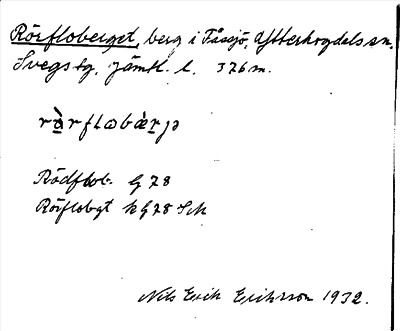 Rörfloberget, berg i Fåssjö, Ytterhogdals sn.
Svegs tg. Jämtl. l. 376 m.
Rödflob. G 78
Rörflobgt k G 78 Sch
Nils Erik Eriksson 1932.